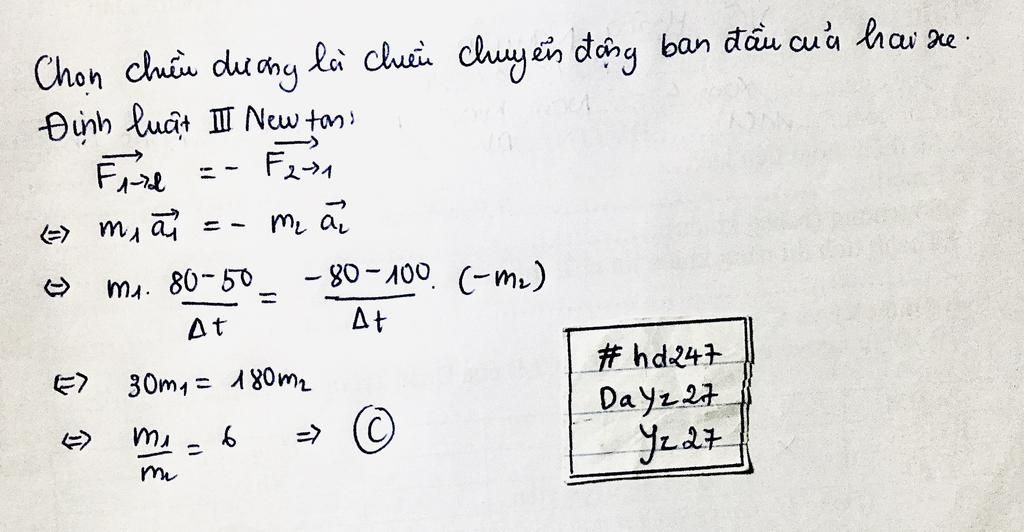 Chọn chiều dương là chiều chuyển động ban đầu của hai xe.
Định luật III Newton:
F₁→₂ = - F₂→₁
⇔ m₁ a₁ = - m₂ a₂
⇔ m₁. (80-50)/Δt = (-80-100)/Δt. (-m₂)
⇔ 30m₁ = 180m₂
⇔ m₁/m₂ = 6 ⇒ C
# hd247
DaYz27
Yz27